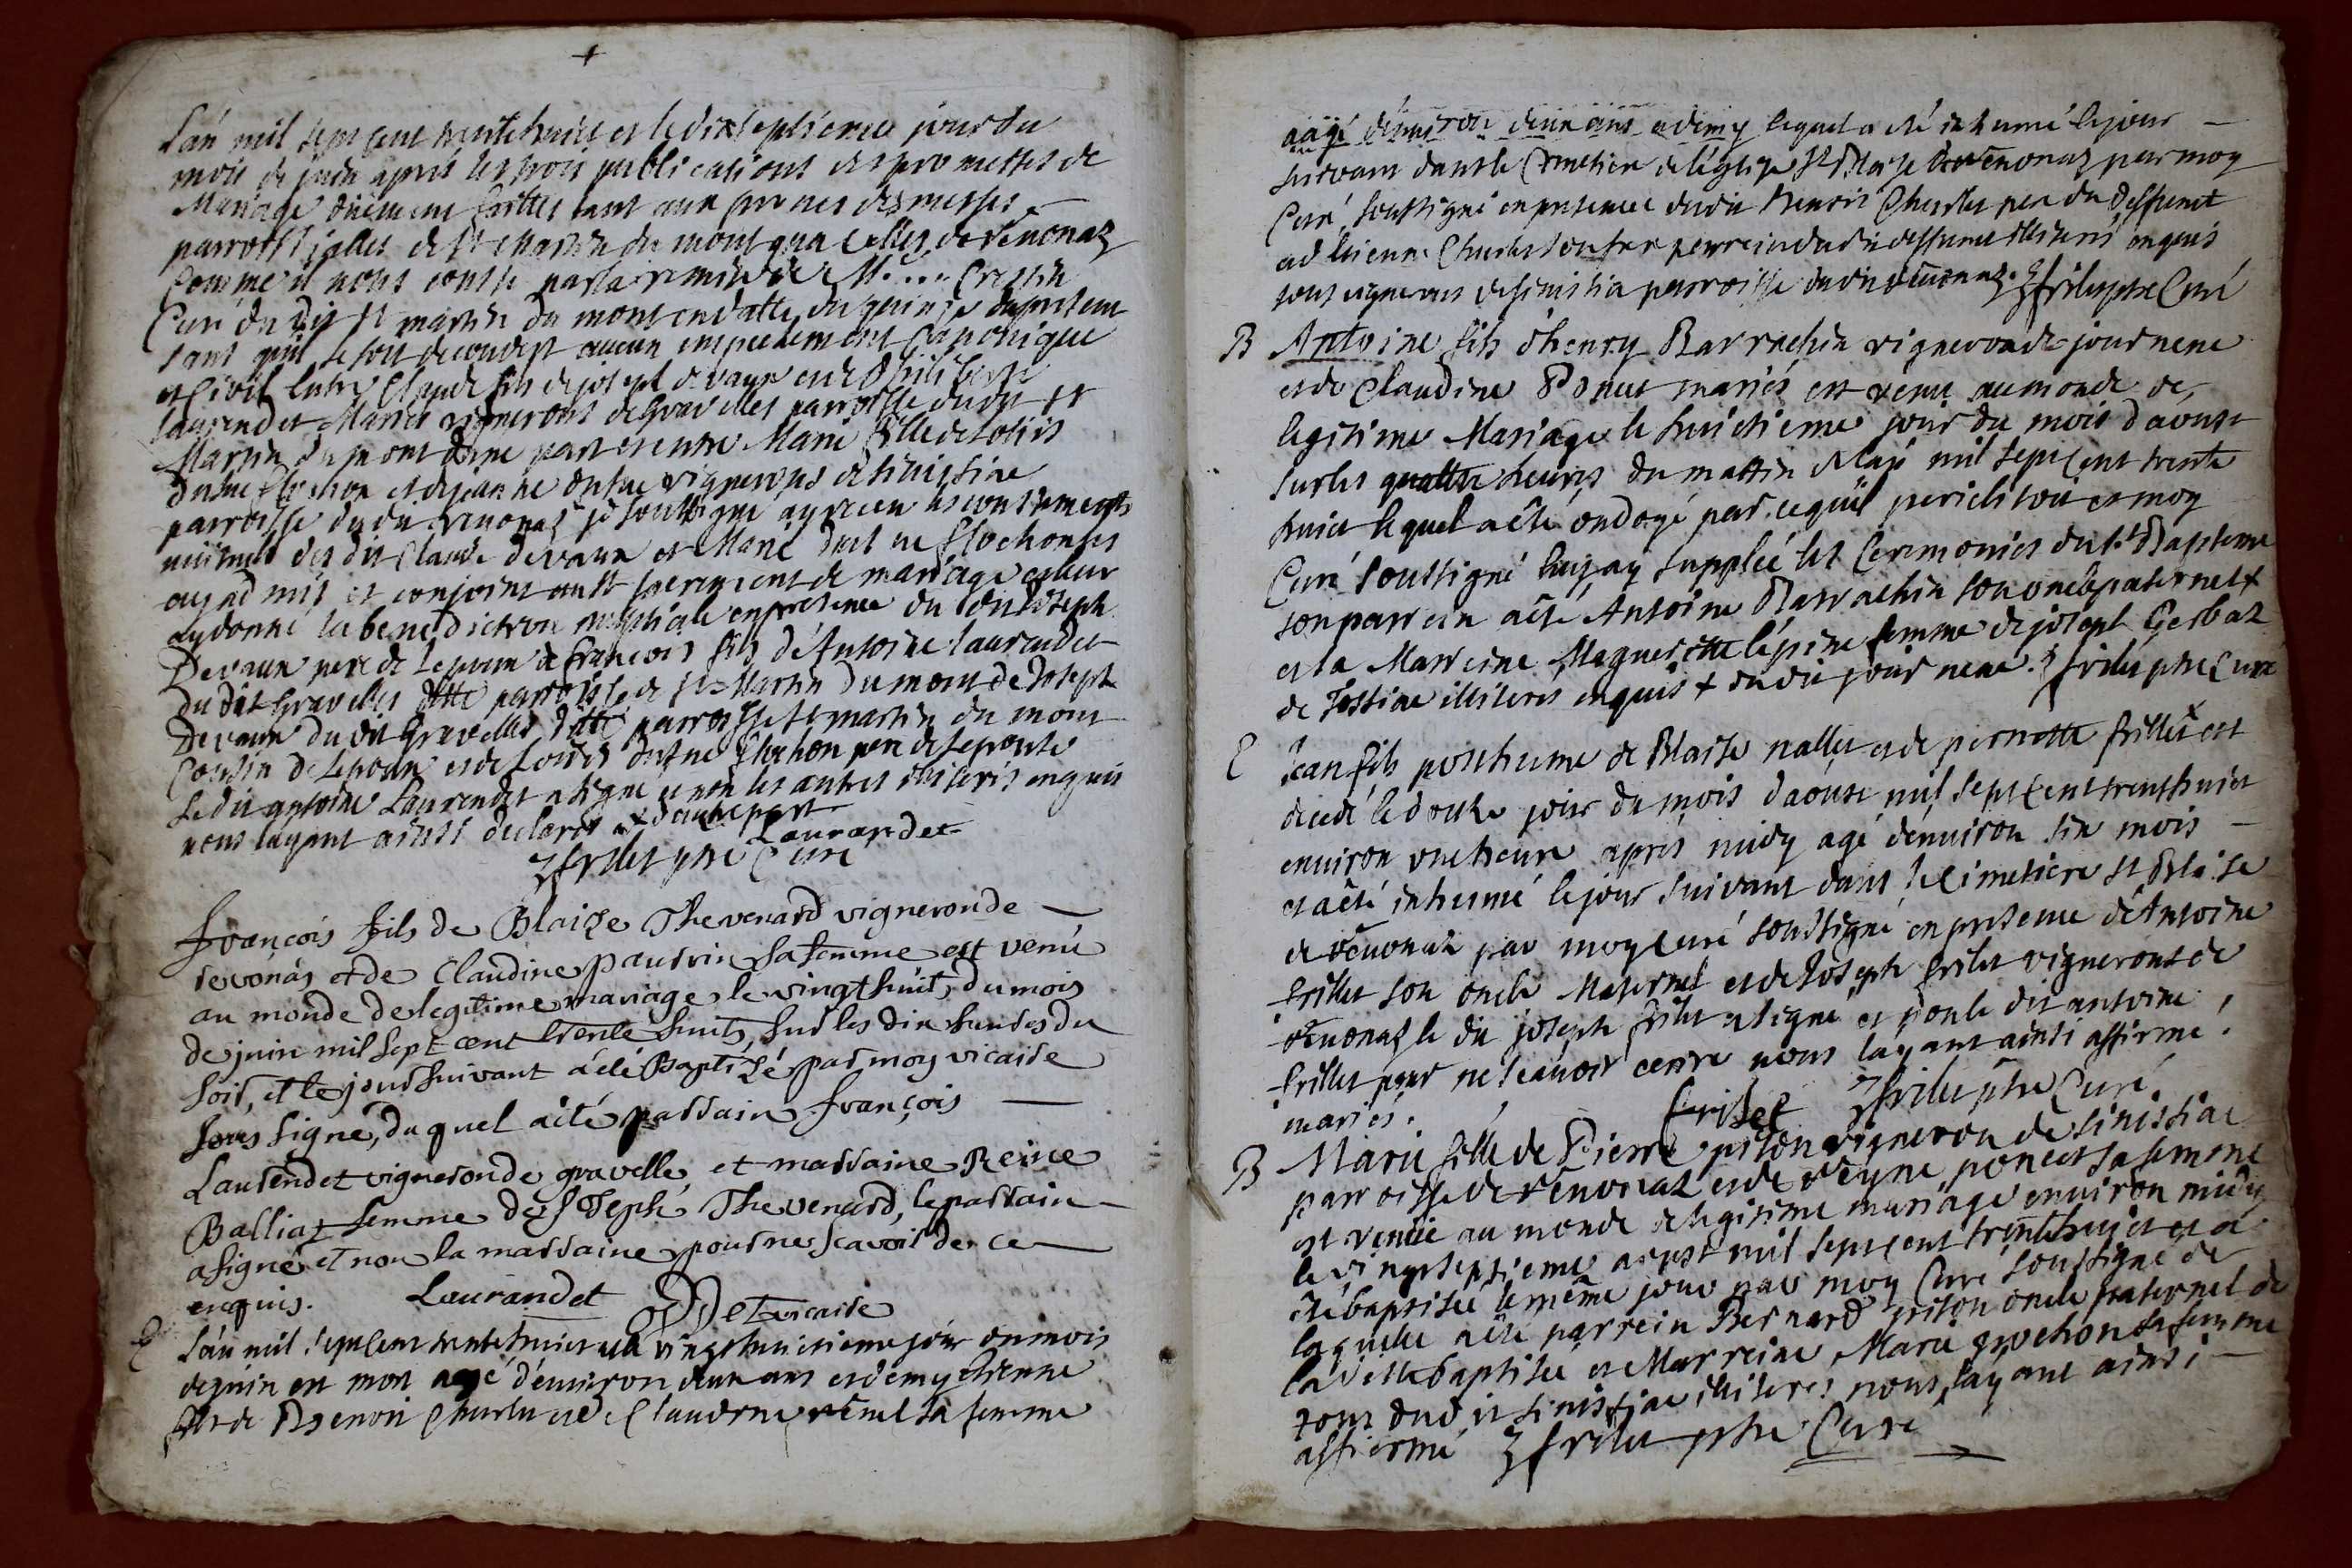 L'án mil sept cent trente huict et le dixseptieme jour du
mois de juin aprés les trois publications des promesses de
Mariage düement faittes tant aux prones des messes
parroissialles de St Martin du mont qua celles de Revonaz
Comme il nous conste par la remise de Mr .... Crestin
Curé du dit St martin du mont en datte du quinze du present
sans quil se soit decouvert aucun empechement Canonique
et Civil Entre Claude fils de joseph devaux et de Philiberte
laurendet Mariés vignerons de gravelles parroisse dudit St
Martin du mont dune part et entre Marie fille de Loüis
dit ne Clochon et de jeanne vignerons de sinissiae
parroisse du dit revonaz je soussigné ay receu les consentements
mutuels des dit Claude devaux et Marie Clochon les
ay admis et conjoint au St sacrement de mariage et leur
ay donné la benediction nuptiale en presence du dit Joseph
Devaux pere de lepoux de françois fils d'Antoine laurendet
du dit gravelles ditte parroisse de St Martin du mont de Joseph
Devaux du dit gravelles ditte parroisse St martin du mont
Cousin de lepoux et de Loüis Clochon pere de lepouse
le dit antoine Laurendet a signé et non les autres illiteris enquis
nous layant ainsi declaré x d'autre part
Laurandet
frilet ptre Curé
françois fils de Blaize Thevenard vigneron de
revonás et de Claudine Paudrin sa femme est venú
au monde de legitime mariage le vingt huit du mois
de juin mil sept cent trente huit, sur les dix heures du
soir, et le jour suivant á été Baptizé par moy vicaire
sous signé, du quel a été parrain françois
Laurendet vigneron de gravelle, et marraine Reine
Balliaz femme de Joseph Thevenard, le parrain
a signé et non la marraine pour ne scavoir de ce
enquis. Laurandet vicaire
L'án mil sept cent trente huict et le vingt huictieme jour du mois
de juin est mort agé d'environ deux ans et demy etienne
fils de Benoit Charlet et de Claudine venet sa femme
aagé d'environ deux ans et demy lequel a eté inhumé le jour
suivant dans le Cimetiere de léglise St Blaise de revonaz par moy
Curé soussigné en presence du dit Benoit Charlet pere du deffunt
et d'etienne Charlet son frere perrein du dit deffunt illiteris enquis
tous vignerons de sinissia parroisse du dit revonaz. frilet ptre Curé
B Antoine fils d'henry Barrachin vigneron de journene
et de Claudine Ponet mariés est venu au monde de
legitime Mariage le huictieme jour du mois daoust
sur les quattre heures du mattin de lan mil sept cent trente
huict lequel a été ondoyé par ce quil periclitoit et moy
Curé soussigné luy ay supplée les Ceremonies du St Bapteme
son parrein a été Antoine Barrachin son oncle paternel x
et la Marreine Magueritte lépine femme de joseph Gerbaz
de Tossiae illiteris enquis x du dit journene. frilet ptre Curé
E Jean fils posthume de Blaise nallet et de pernette frillet x est
decedé le douze jour du mois daoust mil sept cent trente huict
environ une heure aprés midy agé denviron six mois
et a été inhumé le jour suivant dans le cimetiere St Blaise
de revonaz par moy curé soussigné en presence d'Antoine
frillet son oncle Maternel et de Joseph frilet vignerons de
revonaz le dit joseph frilet a signé et non le dit antoine
frillet pour ne scavoir cerire nous layant ainsi affirmé.
mariés. frilet frilet ptre Curé
B Marie fille de Pierre piton vigneron de sinissiae
parroisse de revonaz et de reyne poncet sa femme
est venüe au monde de legitime mariage environ midy
le vingtseptieme aoust mil sept cent trente huict et a
été baptisée le même jour par moy Curé soussigné de
laquelle a été parrein Bernard piton oncle paternel de
la ditte baptisée et Marreine Marie grochon sa femme
tous du dit sinissiae illiteres nous layant ainsi
affirmé frilet ptre Curé